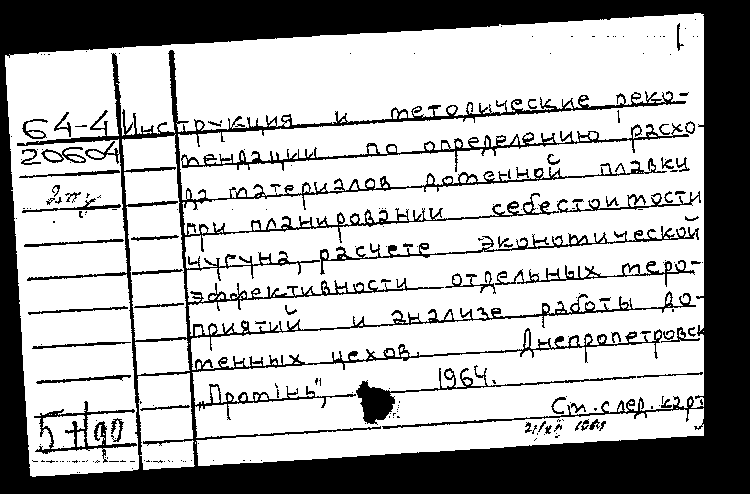 1
64-4 Инструкция и методические реко-
20604 мендации по определению расхо-
2 да материалов доменной плавки
при планировании себестоимости
чугуна, расчете экономической
эффективности отдельных меро-
приятий и анализе работы до-
менных цехов. Днепропетровск
„Промінь", 1964.
См. след. карт